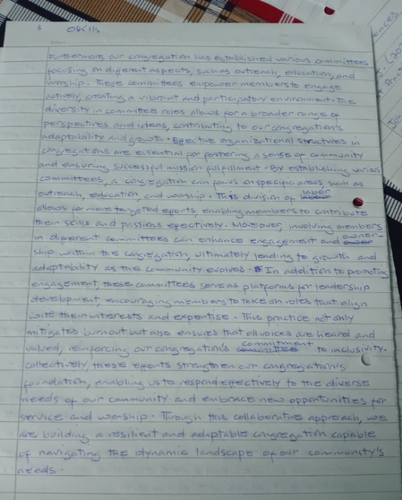 Furthermore our congregation has established various committees
focusing on different aspects, such as outreach, education, and
worship. These committees empower members to engage
actively, creating a vibrant and participatory environment. The
diversity in committee roles allows for a broader range of
perspectives and ideas, contributing to our congregation's
adaptability and growth. Effective organizational structures in
congregations are essential for fostering a sense of community
and ensuring successful mission fulfillment. By establishing various
committees, a congregation can focus on specific areas such as
outreach, education, and worship. This division of labor
allows for more targeted efforts, enabling members to contribute
their skills and passions effectively. Moreover, involving members
in different committees can enhance engagement and owner-
ship within the congregation, ultimately leading to growth and
adaptability as the community evolves. In addition to promoting
engagement, these committees serve as platforms for leadership
development, encouraging members to take on roles that align
with their interests and expertise. This practice not only
mitigates burnout but also ensures that all voices are heard and
valued, reinforcing our congregation's commitment to inclusivity.
Collectively these efforts strengthen our congregation's
foundation, enabling us to respond effectively to the diverse
needs of our community and embrace new opportunities for
service and worship. Through this collaborative approach, we
are building a resilient and adaptable congregation capable
of navigating the dynamic landscape of our community's
needs.